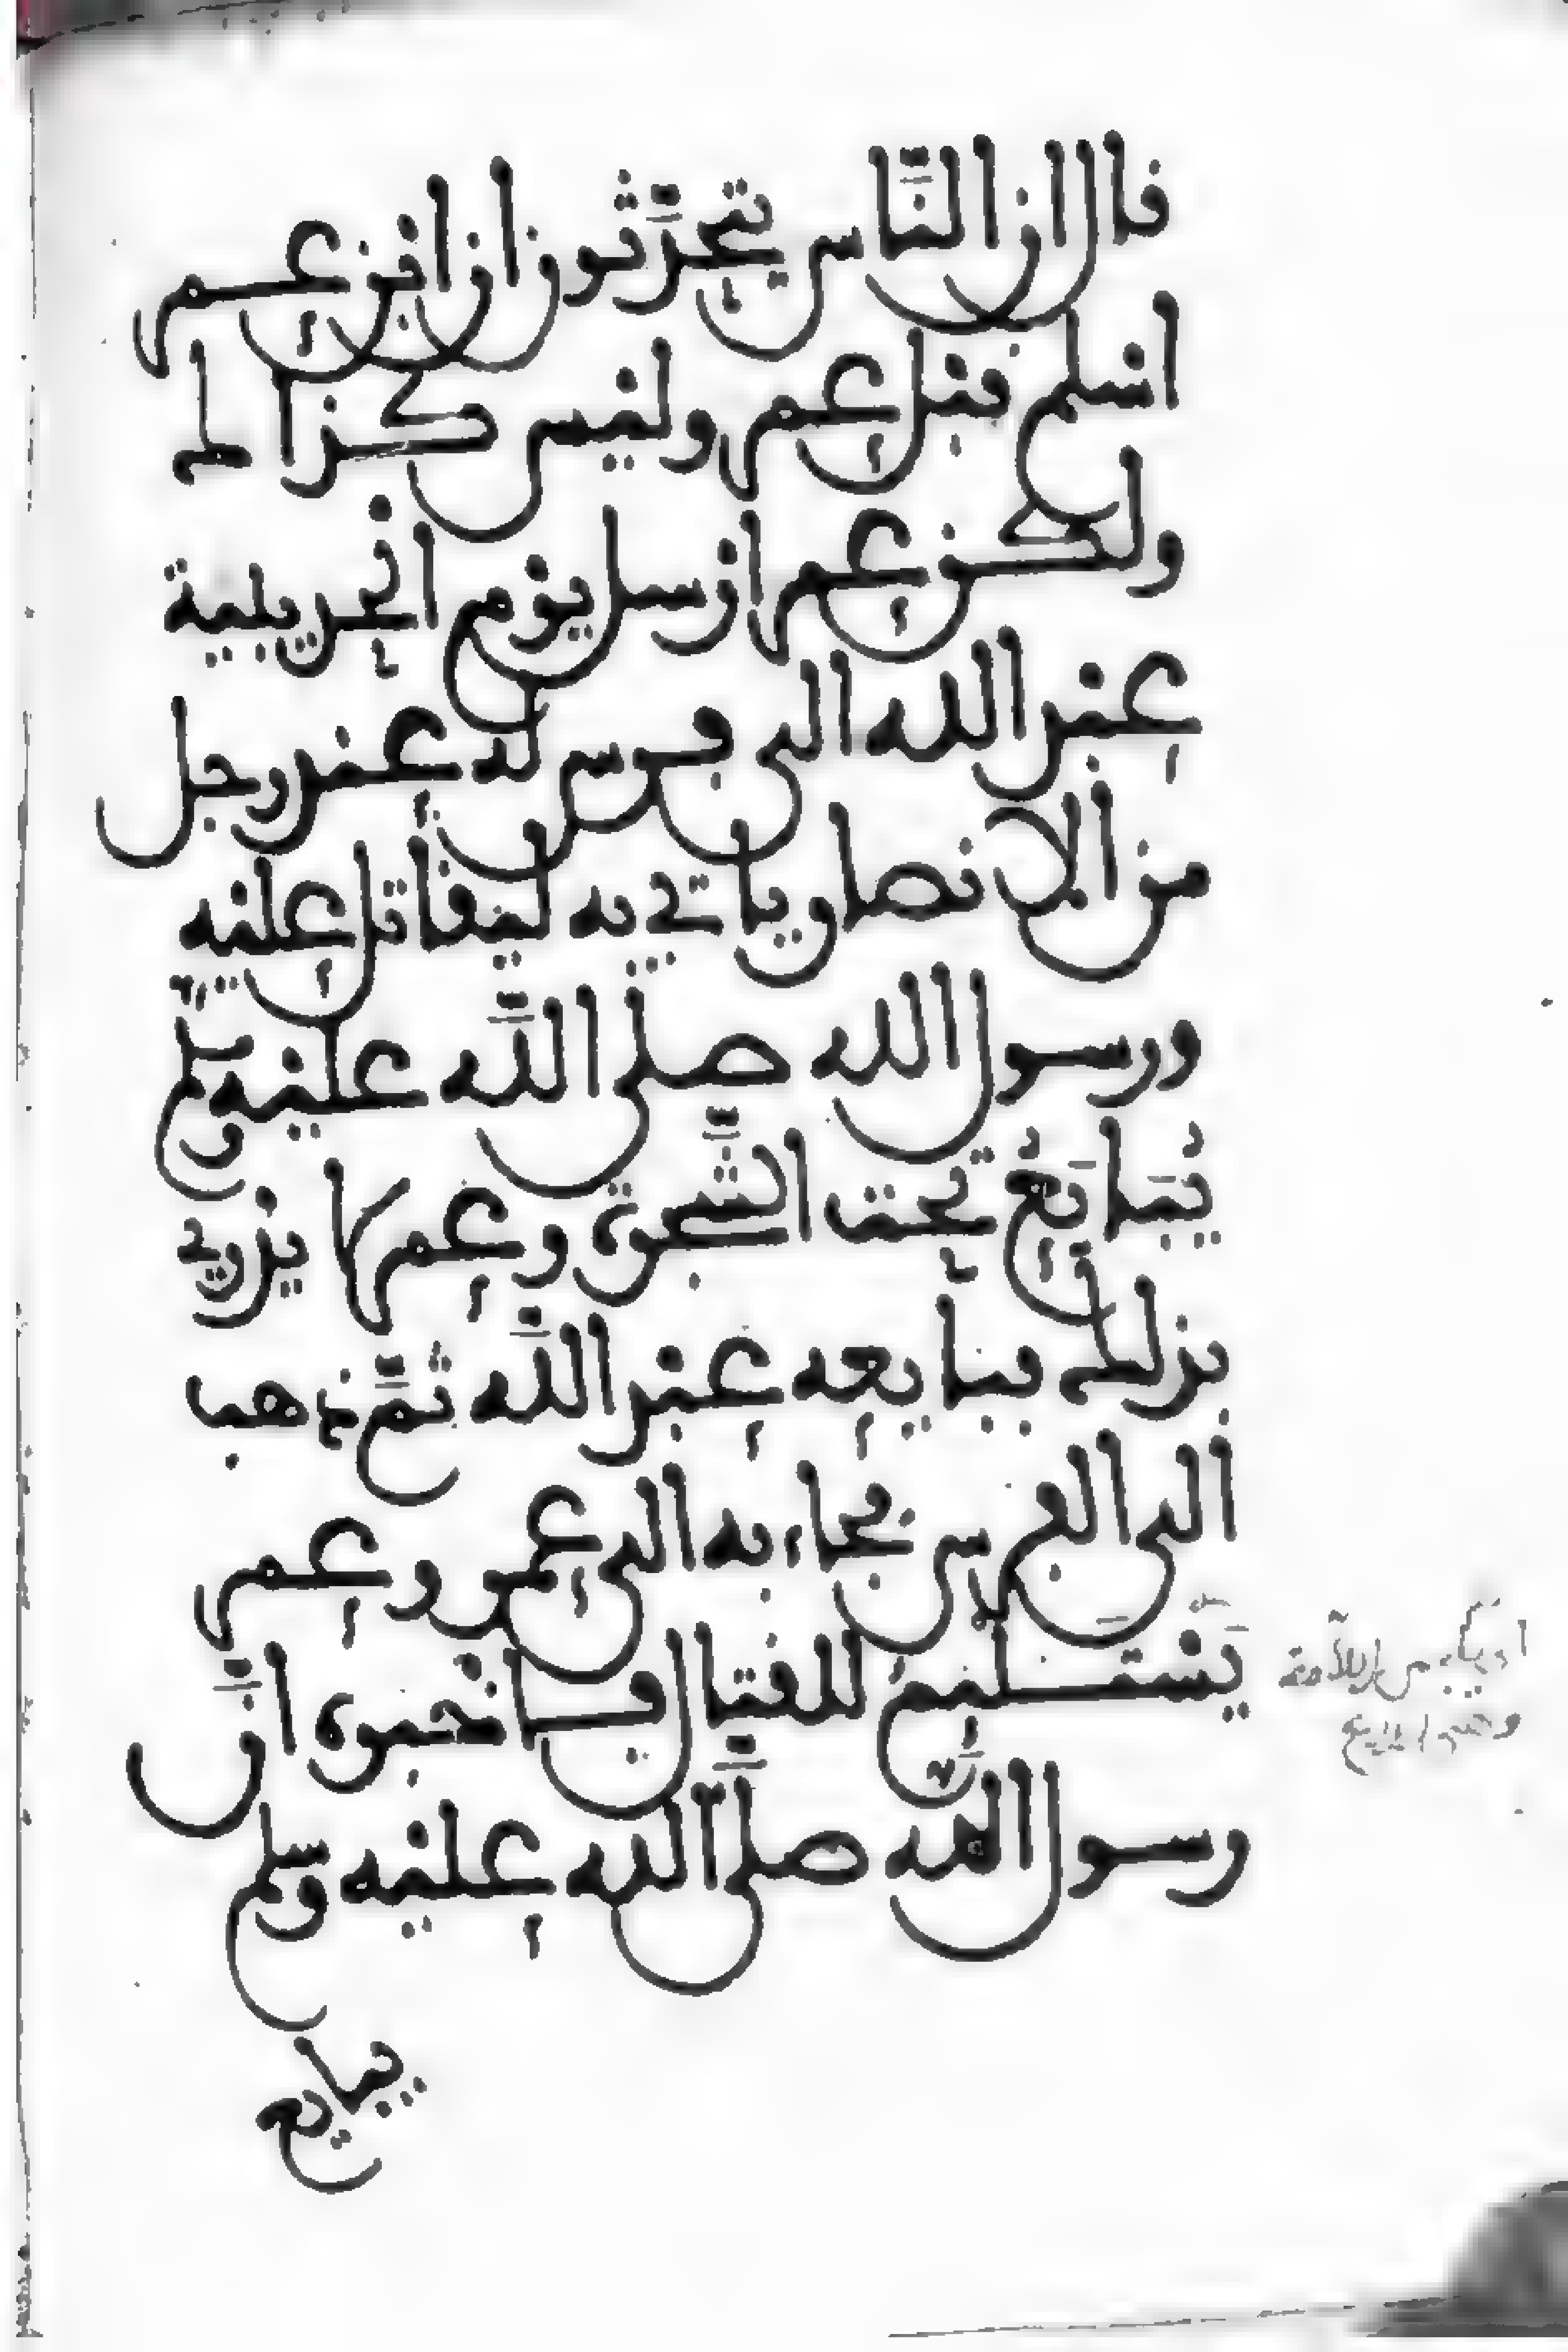 قال ان النّاس يتحدّثون ان ابن عمر
اسلم قبل عمر وليس كذلك
ولكن عمر ارسل يوم الحديبية
عبد الله الى فرس له عند رجل
من الانصار ياتي به ليقاتل عليه
ورسول الله صلى اللّه عليه وسلم
يُبَايَعُ تحت الشّجرة وعمر لا يدري
بذلك فبايعه عبد اللّه ثمّ ذهب
الى الفرس فجاء به الى عمر وعمر
يَسْتَلْئِمُ للقتال فاخبره انّ
رسول الله صلّى الله عليه وسلم
يبايع
اي يلبس اللأمة
وهي الدرع